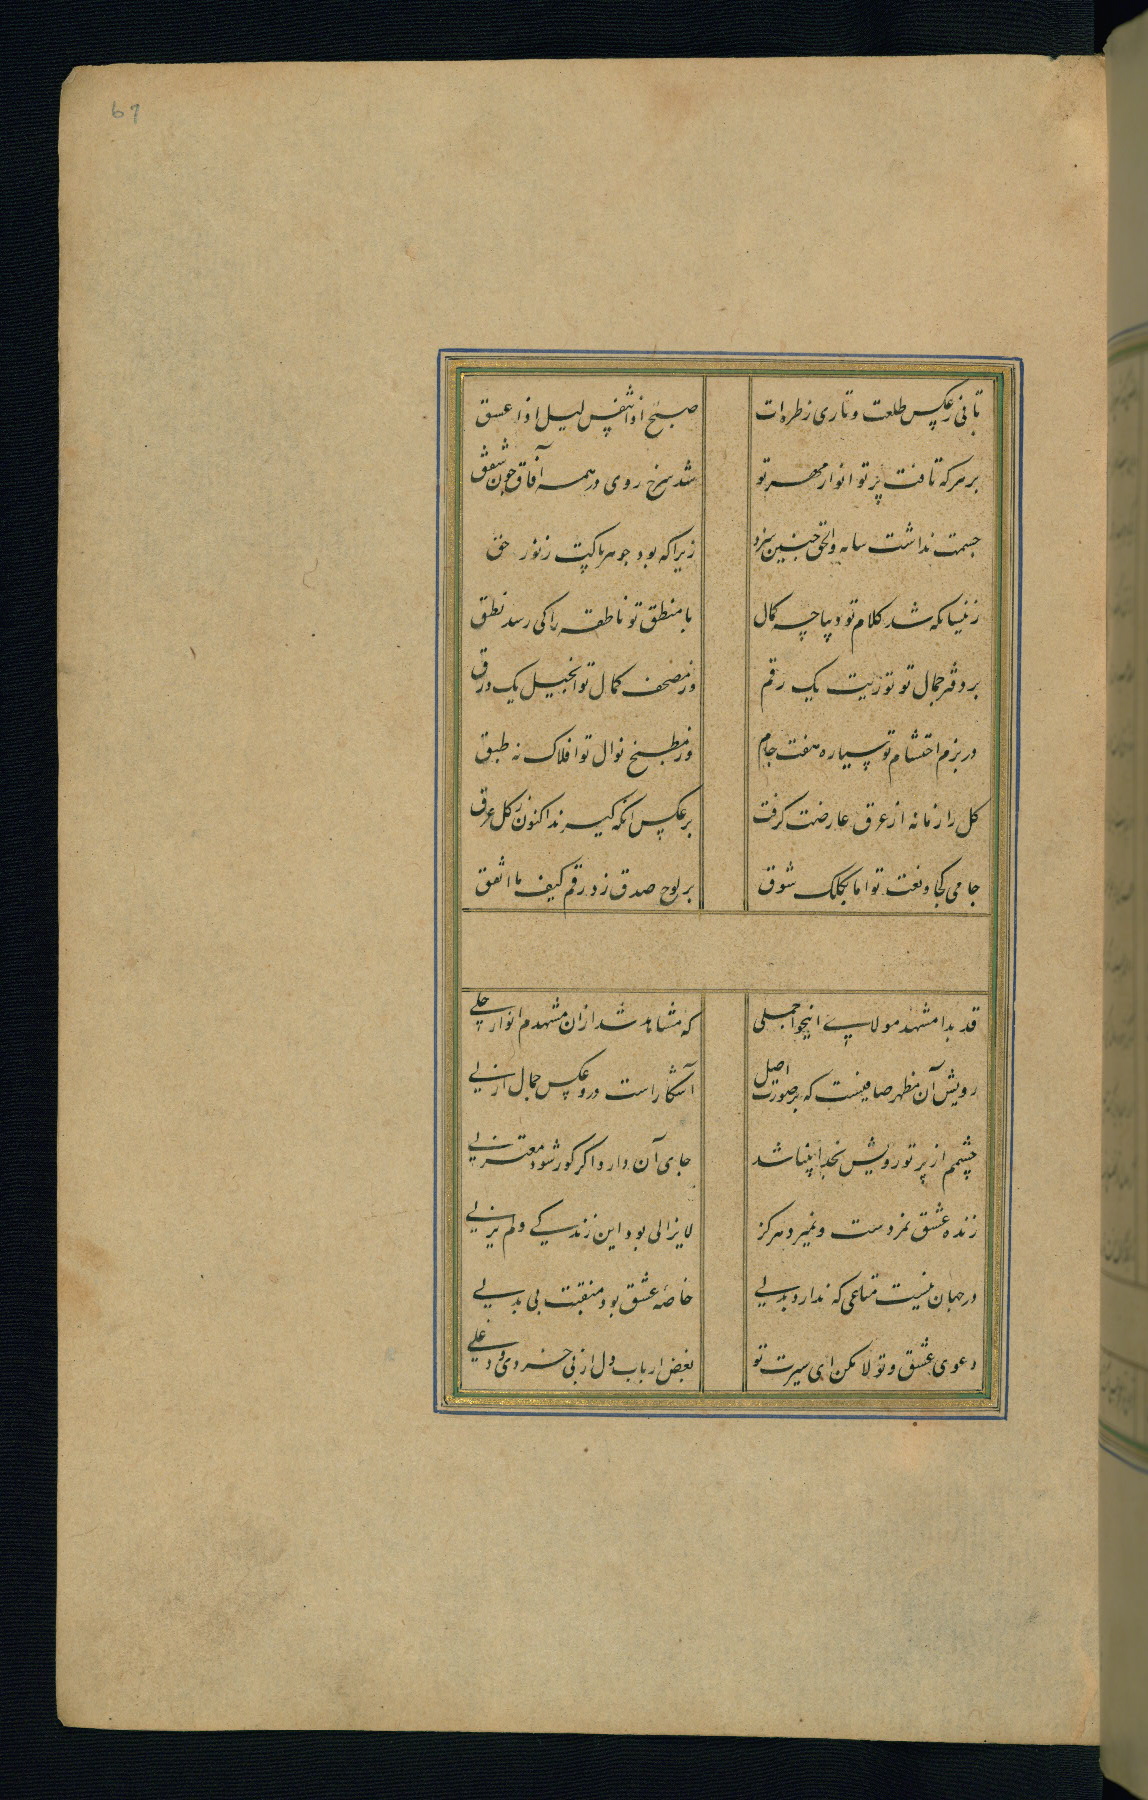 67
تابی ز عکس طلعت و تاری ز طره‌ات صبح اذا تنفس لیل اذا عسق
بر هر که تافت پرتو انوار مهر تو شد سرخ روی در همه آفاق چون شفق
جسمت نداشت سایه و الحق چنین سزد زیرا که بود جوهر پاکت ز نور حق
زینسان که شد کلام تو دیباچه کمال با منطق تو ناطقه را کی رسد نطق
بر دفتر جمال تو توریت یک رقم وز مصحف کمال تو انجیل یک ورق
در بزم احتشام تو سیاره هفت جام وز مطبخ نوال تو افلاک نه طبق
کل را زمانه از عرق عارضت کرفت بر عکس انکه کیرند اکنون ز کل عرق
جامی کجا و نعت تو اما بکلک شوق بر لوح صدق زد رقم کیف ما اتفق
قد بدا مشهد مولای انیخوا جملی که مشاهد شد از ان مشهدم انوار جلی
رویش آن مظهر صافیست که بر صورت اصل آشکار است درو عکس جمال ازلی
چشمم از پرتو رویش بخدا بینا شد جای آن دارد اگر کور شود معتزلی
زنده عشق نمردست و نمیرد هرکز لایزالی بود این زندکی و لم یزلی
در جهان نیست متاعی که ندارد بدلی خاصه عشق بود منقبت بی بدلی
دعوی عشق و تولا مکن ای سیرت تو بغض ارباب دل از بی خردی و دغلی